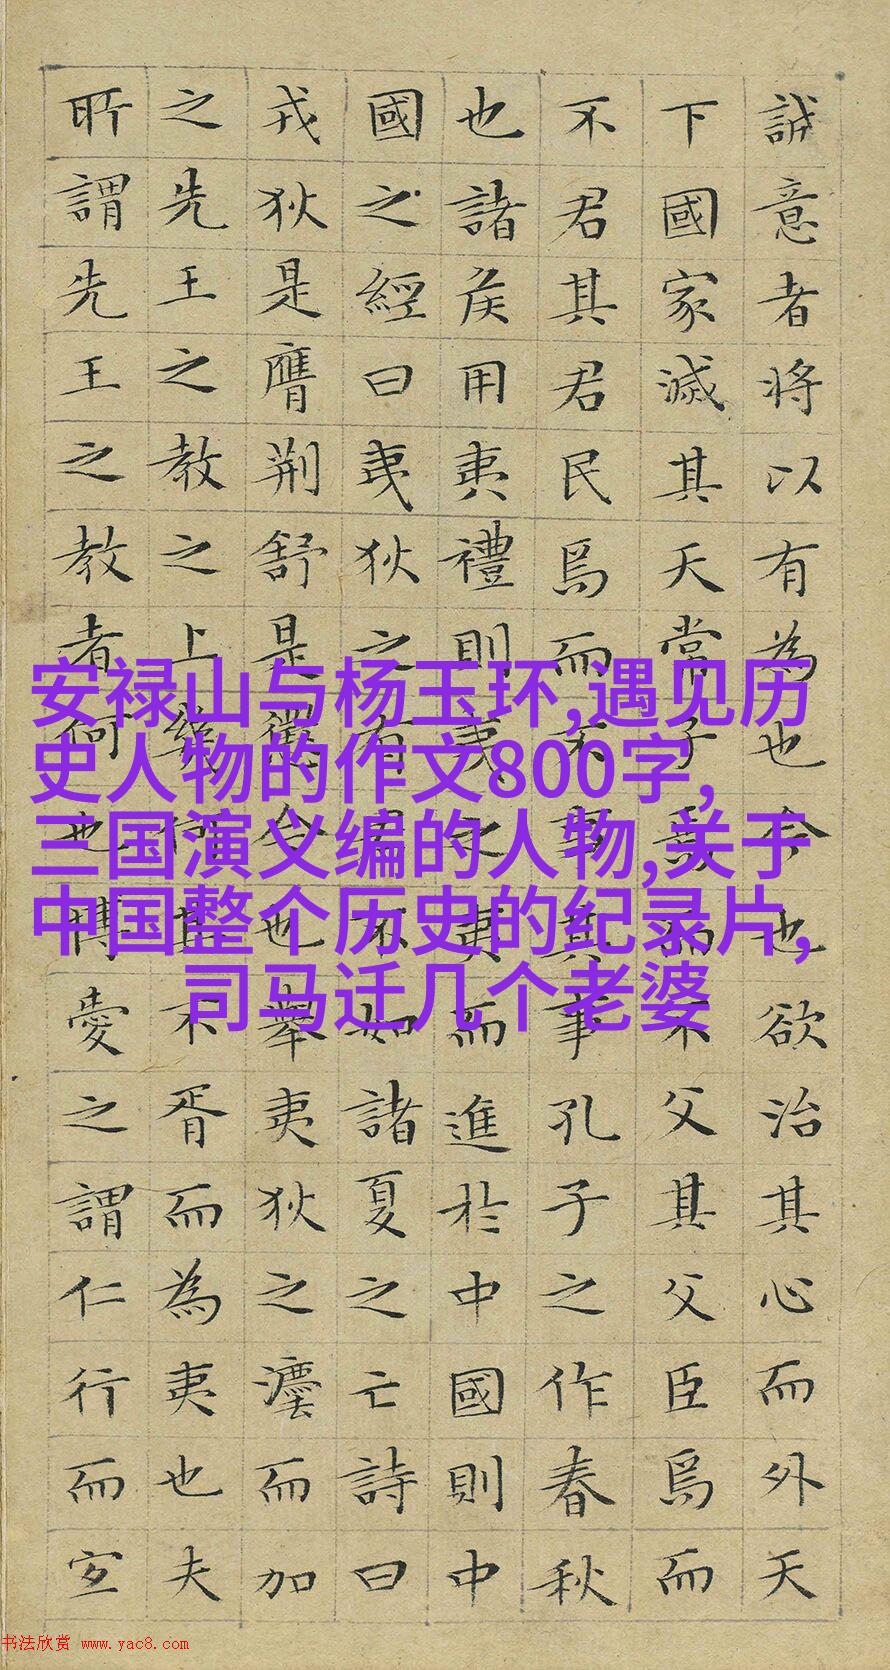 誠意者将以有為也今也欲治其心而外天
下國家滅其天常子焉而不父其父臣焉而
不君其君民焉而不事其事孔子之作春秋
也諸侯用夷禮則夷之夷而進於中國則中
國之經曰夷狄之有君不如諸夏之亡詩曰
戎狄是膺荆舒是懲今也舉夷狄之灋而加
之先王之教之上幾何其不胥而為夷也夫
所謂先王之教者何也博愛之謂仁行而宜
安禄山与杨玉环,遇见历
史人物的作文800字,
三国演义编的人物,关于
中国整个历史的纪录片,
司马迁几个老婆
书法欣赏 www.yac8.com